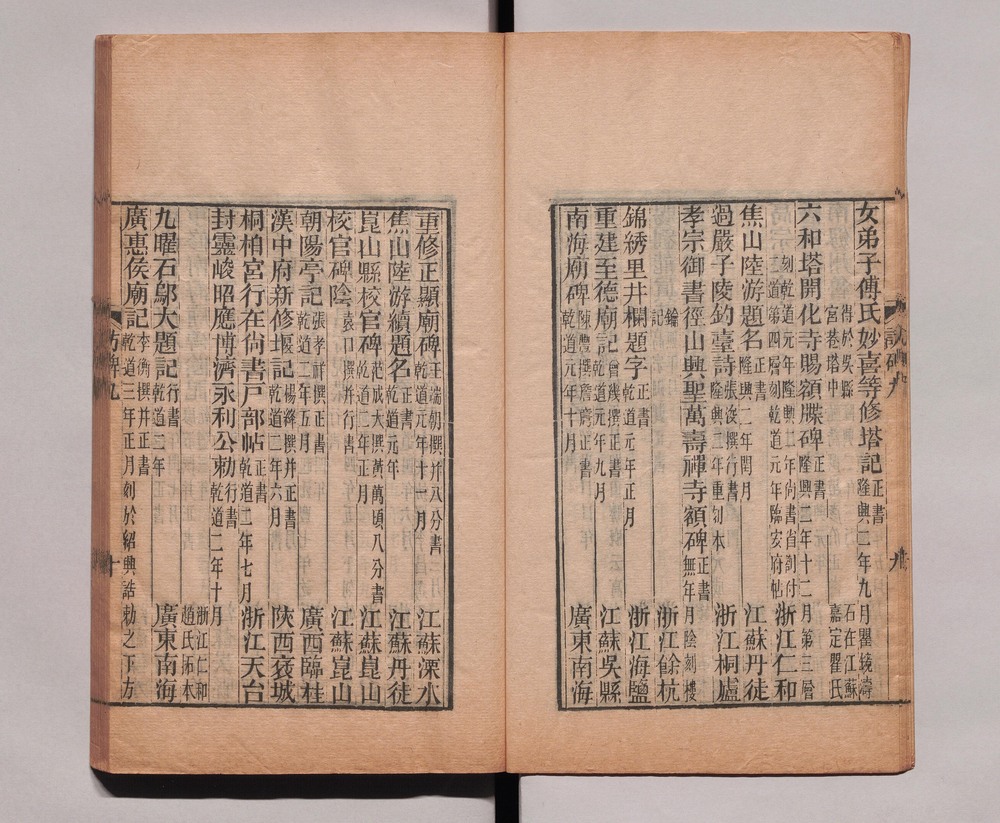 女弟子傅氏妙喜等修塔記 正書 隆興二年九月瞿鏡濤 石在江蘇嘉定瞿氏
得於吳縣宮巷塔中
六和塔開化寺賜額牒碑 正書 隆興二年十二月第三層 浙江仁和
刻乾道元年隆興二年尚書省劄付
三道第四層刻乾道元年臨安府帖
焦山陸游題名 正書 隆興二年閏月 江蘇丹徒
過嚴子陵釣臺詩 張浚撰行書 隆興二年重刻本 浙江桐廬
孝宗御書徑山興聖萬壽禪寺額碑 正書 無年月陰刻樓
鑰記 浙江餘杭
錦綉里井欄題字 正書 乾道元年正月 浙江海鹽
重建至德廟記 曾幾撰正書 乾道元年九月 江蘇吳縣
南海廟碑 陳豐撰詹正書 乾道元年十月 廣東南海
重修正顯廟碑 王端朝撰并八分書 乾道元年十一月 江蘇溧水
焦山陸游續題名 正書 乾道元年 江蘇丹徒
崑山縣校官碑 范成大撰黃萬頃八分書 乾道二年正月 江蘇崑山
校官碑陰 袁口撰并行書 江蘇崑山
朝陽亭記 張孝祥撰正書 乾道二年五月 廣西臨桂
漢中府新修堰記 楊絳撰并正書 乾道二年六月 陝西褒城
桐柏宮行在尚書戶部帖 正書 乾道二年七月 浙江天台
封靈峻昭應博濟永利公勅 行書 乾道二年十月
浙江仁和趙氏拓本
九曜石鄔大題記 行書 乾道二年 廣東南海
廣惠侯廟記 李衡撰并正書 乾道三年正月刻於紹興誥勅之下方
訪碑九
十